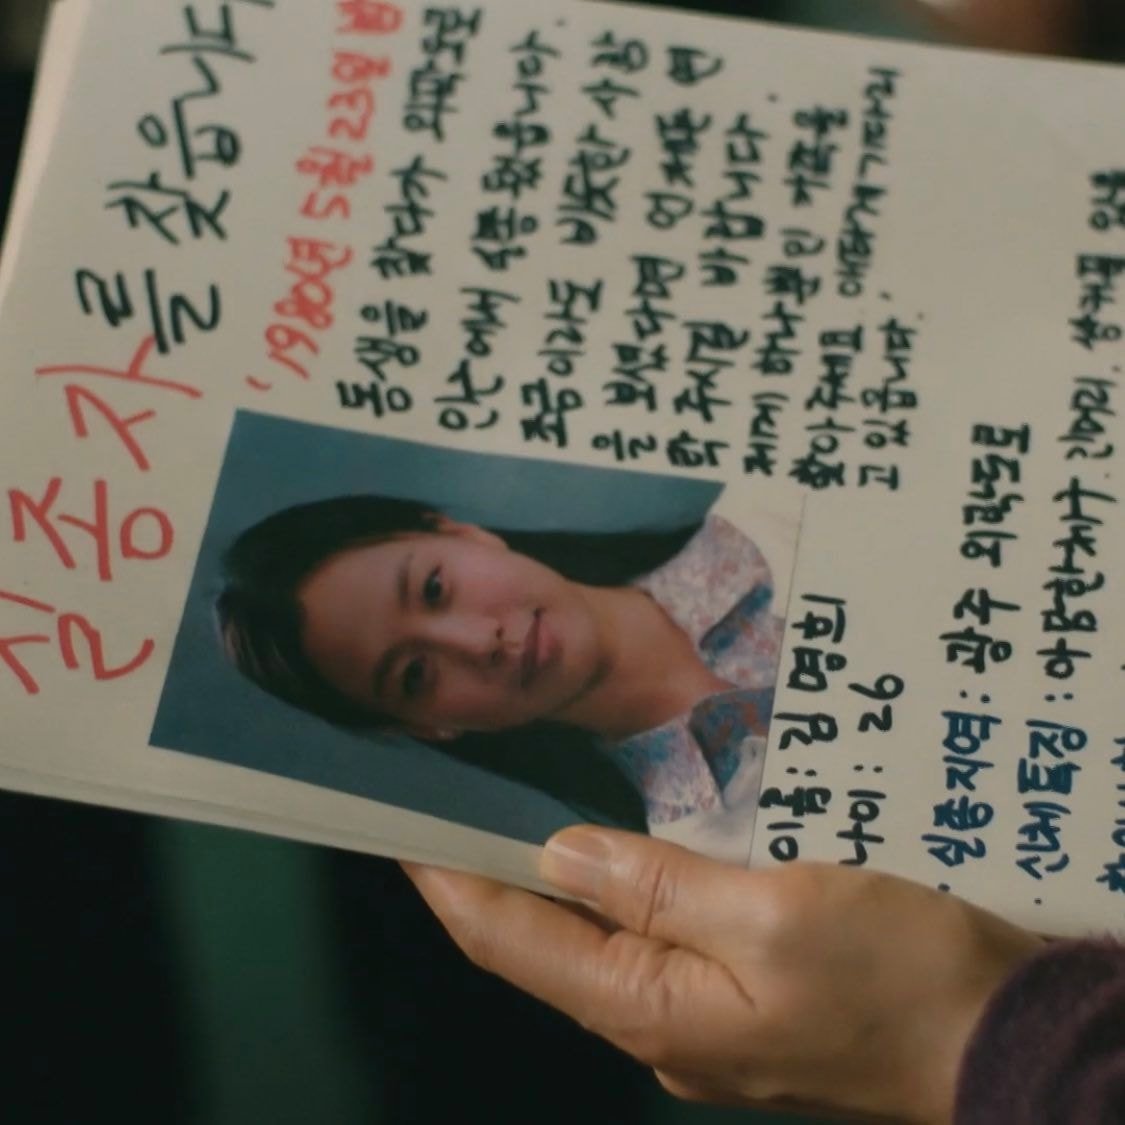 실종자를 찾습니다
'1980년 5월 23일 밤
동생을 찾다가 외곽으로
안근에서 실종됐습니다.
조금이라도 비슷한 사람
을 보셨다면 언제든 연
락 주시길 바랍니다.
제게 하나뿐인 가족을
찾아주세요. 애타게 기다리
고 있습니다.
이름: 김명희
나이: 26
· 실종지역: 광주 외곽도로
· 신체특징: 아담한 체구. 긴머리. 쌍커풀 있음